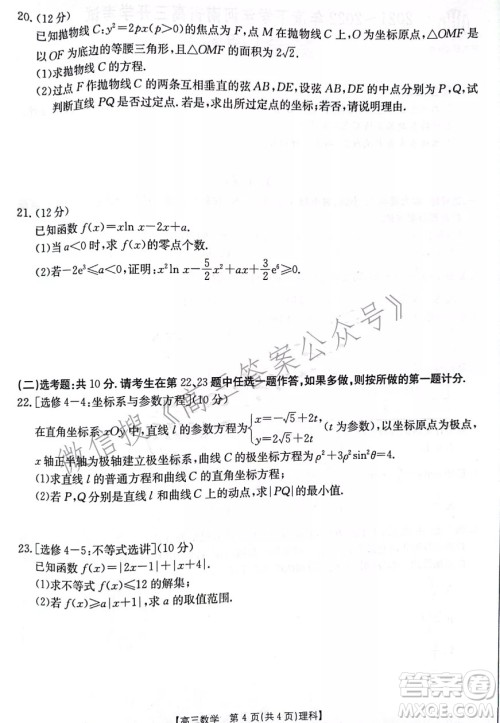 20.(12分)
已知抛物线 C:y²=2px(p>0)的焦点为 F，点 M 在抛物线 C 上，O 为坐标原点，△OMF
是以 OF 为底边的等腰三角形，且△OMF 的面积为 2√2.
(1)求抛物线 C 的方程.
(2)过点 F 作抛物线 C 的两条互相垂直的弦 AB,DE,设弦 AB,DE 的中点分别为 P,Q,试
判断直线 PQ 是否过定点.若是，求出所过定点的坐标；若否，请说明理由.
21.(12分)
已知函数 f(x)=xln x-2x+a.
(1)当 a<0 时，求 f(x)的零点个数.
(2)若-2e³≤a<0,证明：x²ln x-5/2x²+ax+3/2e⁶≥0.
(二)选考题：共 10 分.请考生在第 22,23 题中任选一题作答，如果多做，则按所做的第一题计分.
22.[选修 4-4:坐标系与参数方程](10分)
在直角坐标系 xOy 中，直线 l 的参数方程为{x=-√5+2t, y=√5+2t (t 为参数)，以坐标原点为极点，
x 轴正半轴为极轴建立极坐标系，曲线 C 的极坐标方程为 ρ²+3ρ²sin²θ=4.
(1)求直线 l 的普通方程和曲线 C 的直角坐标方程；
(2)若 P,Q 分别为直线 l 和曲线 C 上的动点，求|PQ|的最小值.
23.[选修 4-5:不等式选讲](10分)
已知函数 f(x)=|2x-1|+|x+4|.
(1)求不等式 f(x)≤12 的解集；
(2)若 f(x)≥a|1-2x|,求 a 的取值范围.
微信搜《高三答案公众号》
【高三数学 第 4 页(共 4 页)理科】
答案圈
MXQE.COM